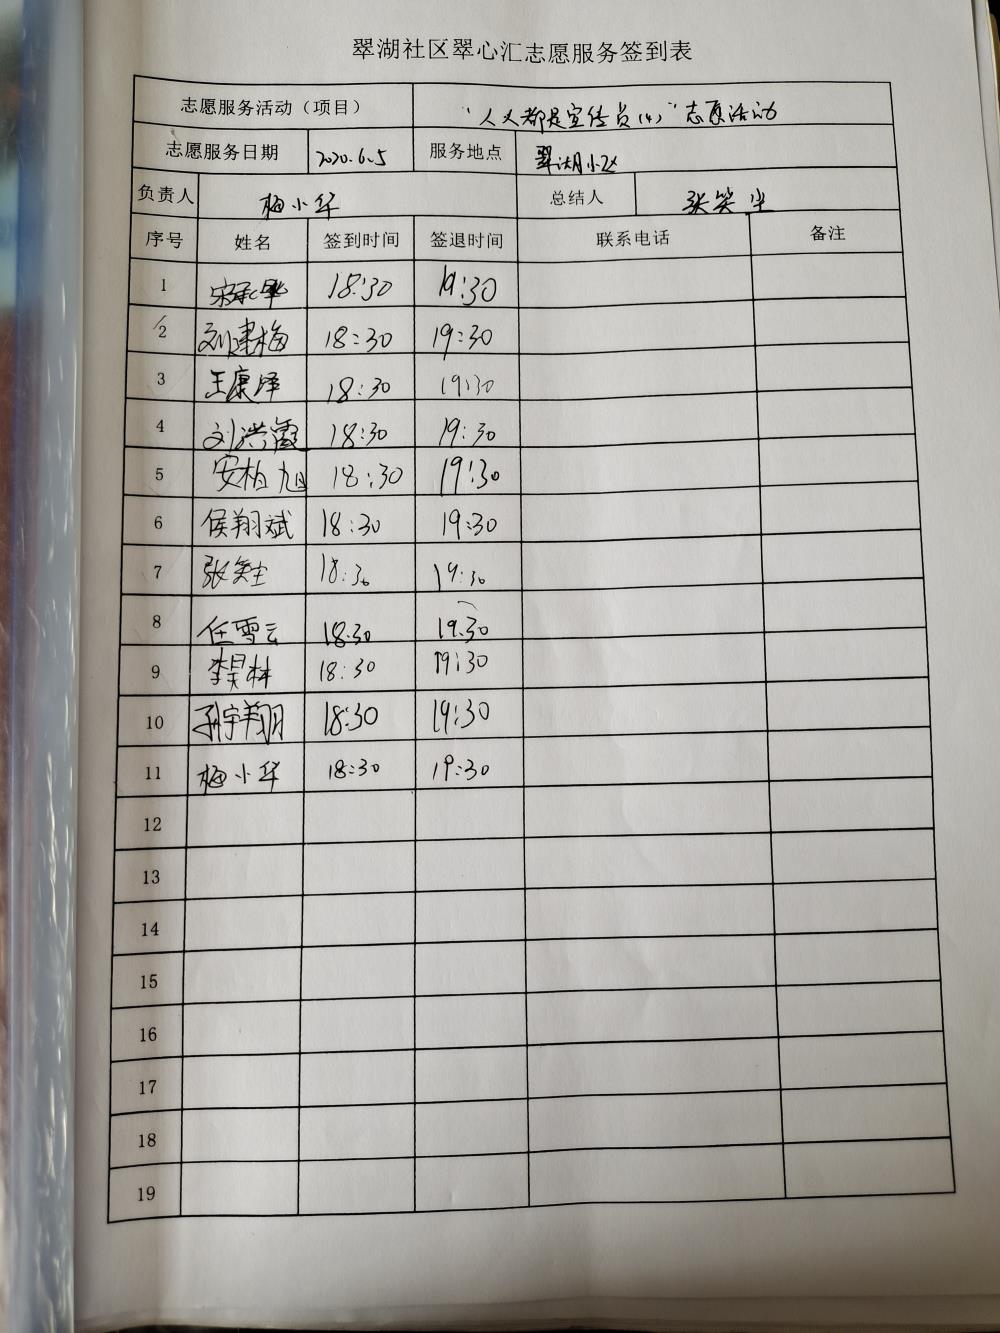 翠湖社区翠心汇志愿服务签到表
志愿服务活动（项目） “人人都是宣传员(4)”志愿活动
志愿服务日期 2020.6.5 服务地点 翠湖小区
负责人 梅小华 总结人 张笑尘
序号 姓名 签到时间 签退时间 联系电话 备注
1 18:30 19:30
2 刘建梅 18:30 19:30
3 王康泽 18:30 19:30
4 刘洪霞 18:30 19:30
5 安柏旭 18:30 19:30
6 侯翔斌 18:30 19:30
7 张笑尘 18:30 19:30
8 任雪云 18:30 19:30
9 李昊林 18:30 19:30
10 孙宇翔 18:30 19:30
11 梅小华 18:30 19:30
12
13
14
15
16
17
18
19